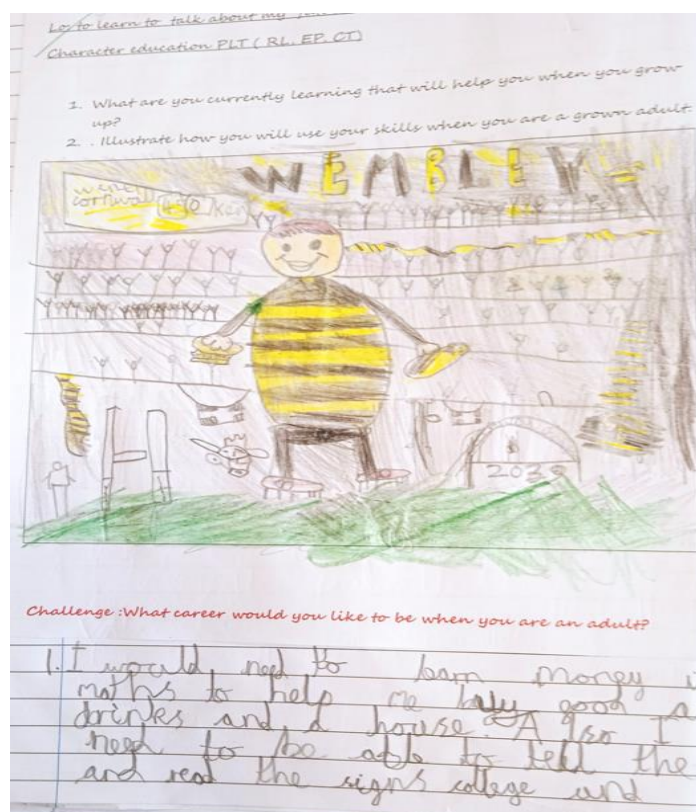 Lo: to learn to talk about my
Character education PLT ( RL, EP, CT)
1. What are you currently learning that will help you when you grow
up?
2. . Illustrate how you will use your skills when you are a grown adult.
WEMBLEY
cornwall
2035
Challenge :What career would you like to be when you are an adult?
1. I would need to learn money
maths to help me good
drinks and a house. Also I
need to be able to tell the
and read the signs college and